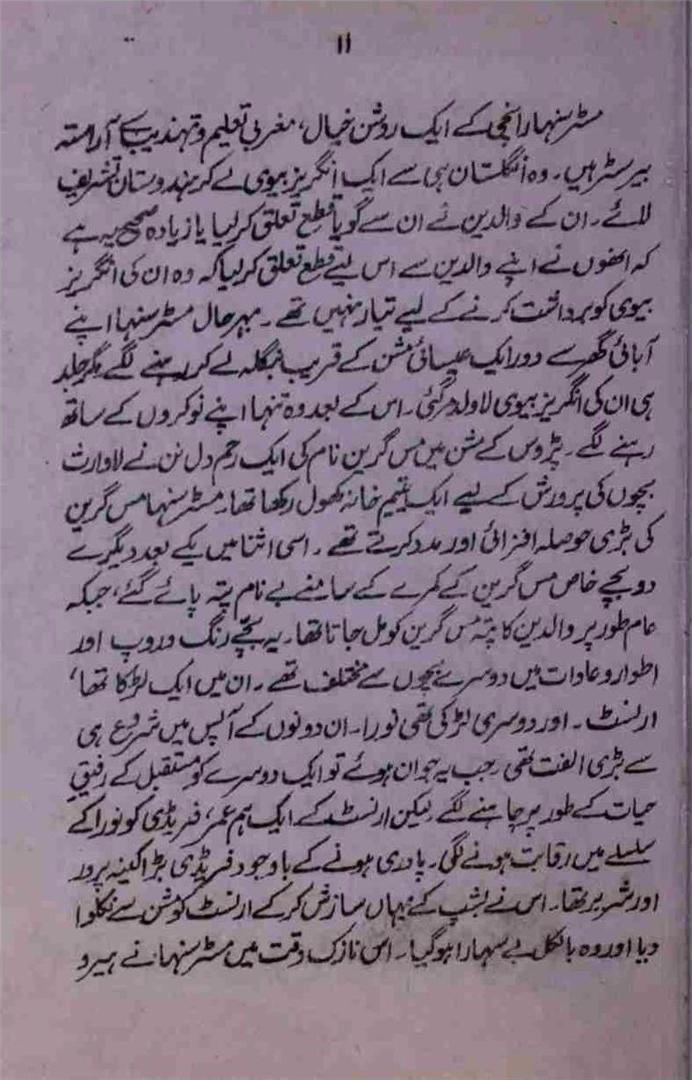 ۱۱
مسٹر سنہا رانچی کے ایک روشن خیال، مغربی تعلیم و تہذیب سے آراستہ
بیرسٹر ہیں۔ وہ انگلستان ہی سے ایک انگریز بیوی لے کر ہندوستان تشریف
لائے۔ ان کے والدین نے ان سے گویا قطع تعلق کر لیا یا زیادہ صحیح یہ ہے
کہ انھوں نے اپنے والدین سے اس لیے قطع تعلق کر لیا کہ وہ ان کی انگریز
بیوی کو برداشت کرنے کے لیے تیار نہیں تھے۔ بہرحال مسٹر سنہا اپنے
آبائی گھر سے دور ایک عیسائی مشن کے قریب بنگلہ لے کر رہنے لگے مگر جلد
ہی ان کی انگریز بیوی لاولد مر گئی۔ اس کے بعد وہ تنہا اپنے نوکروں کے ساتھ
رہنے لگے۔ پڑوس کے مشن میں مس گرین نام کی ایک رحم دل نن نے لاوارث
بچوں کی پرورش کے لیے ایک یتیم خانہ کھول رکھا تھا۔ مسٹر سنہا مس گرین
کی بڑی حوصلہ افزائی اور مدد کرتے تھے۔ اسی اثنا میں یکے بعد دیگرے
دو بچے خاص مس گرین کے کمرے کے سامنے بے نام پتہ پائے گئے، جبکہ
عام طور پر والدین کا پتہ مس گرین کو مل جاتا تھا۔ یہ بچے رنگ و روپ اور
اطوار و عادات میں دوسرے بچوں سے مختلف تھے۔ ان میں ایک لڑکا تھا،
ارنسٹ۔ اور دوسری لڑکی تھی نورا۔ ان دونوں کے آپس میں شروع ہی
سے بڑی الفت تھی۔ جب یہ جوان ہوئے تو ایک دوسرے کو مستقبل کے رفیق
حیات کے طور پر چاہنے لگے۔ لیکن ارنسٹ کے ایک ہم عمر، فریڈی کو نورا کے
سلسلے میں رقابت ہونے لگی۔ پادری ہونے کے باوجود فریڈی بڑا کینہ پرور
اور شریر تھا۔ اس نے بشپ کے یہاں سازش کر کے ارنسٹ کو مشن سے نکلوا
دیا اور وہ بالکل بے سہارا ہو گیا۔ اس نازک وقت میں مسٹر سنہا نے ہیرو